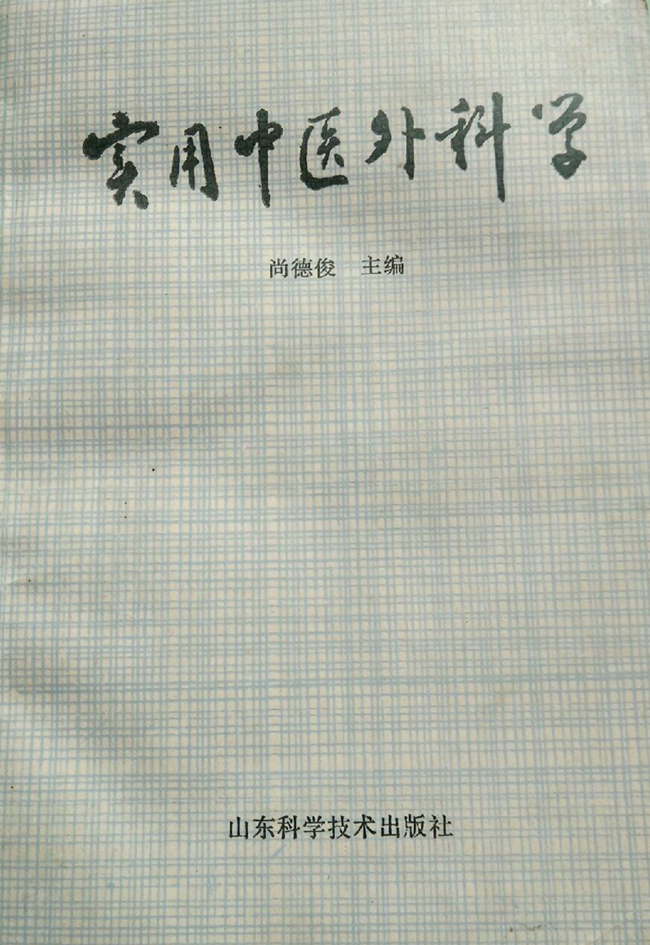 实用中医外科学
尚德俊 主编
山东科学技术出版社